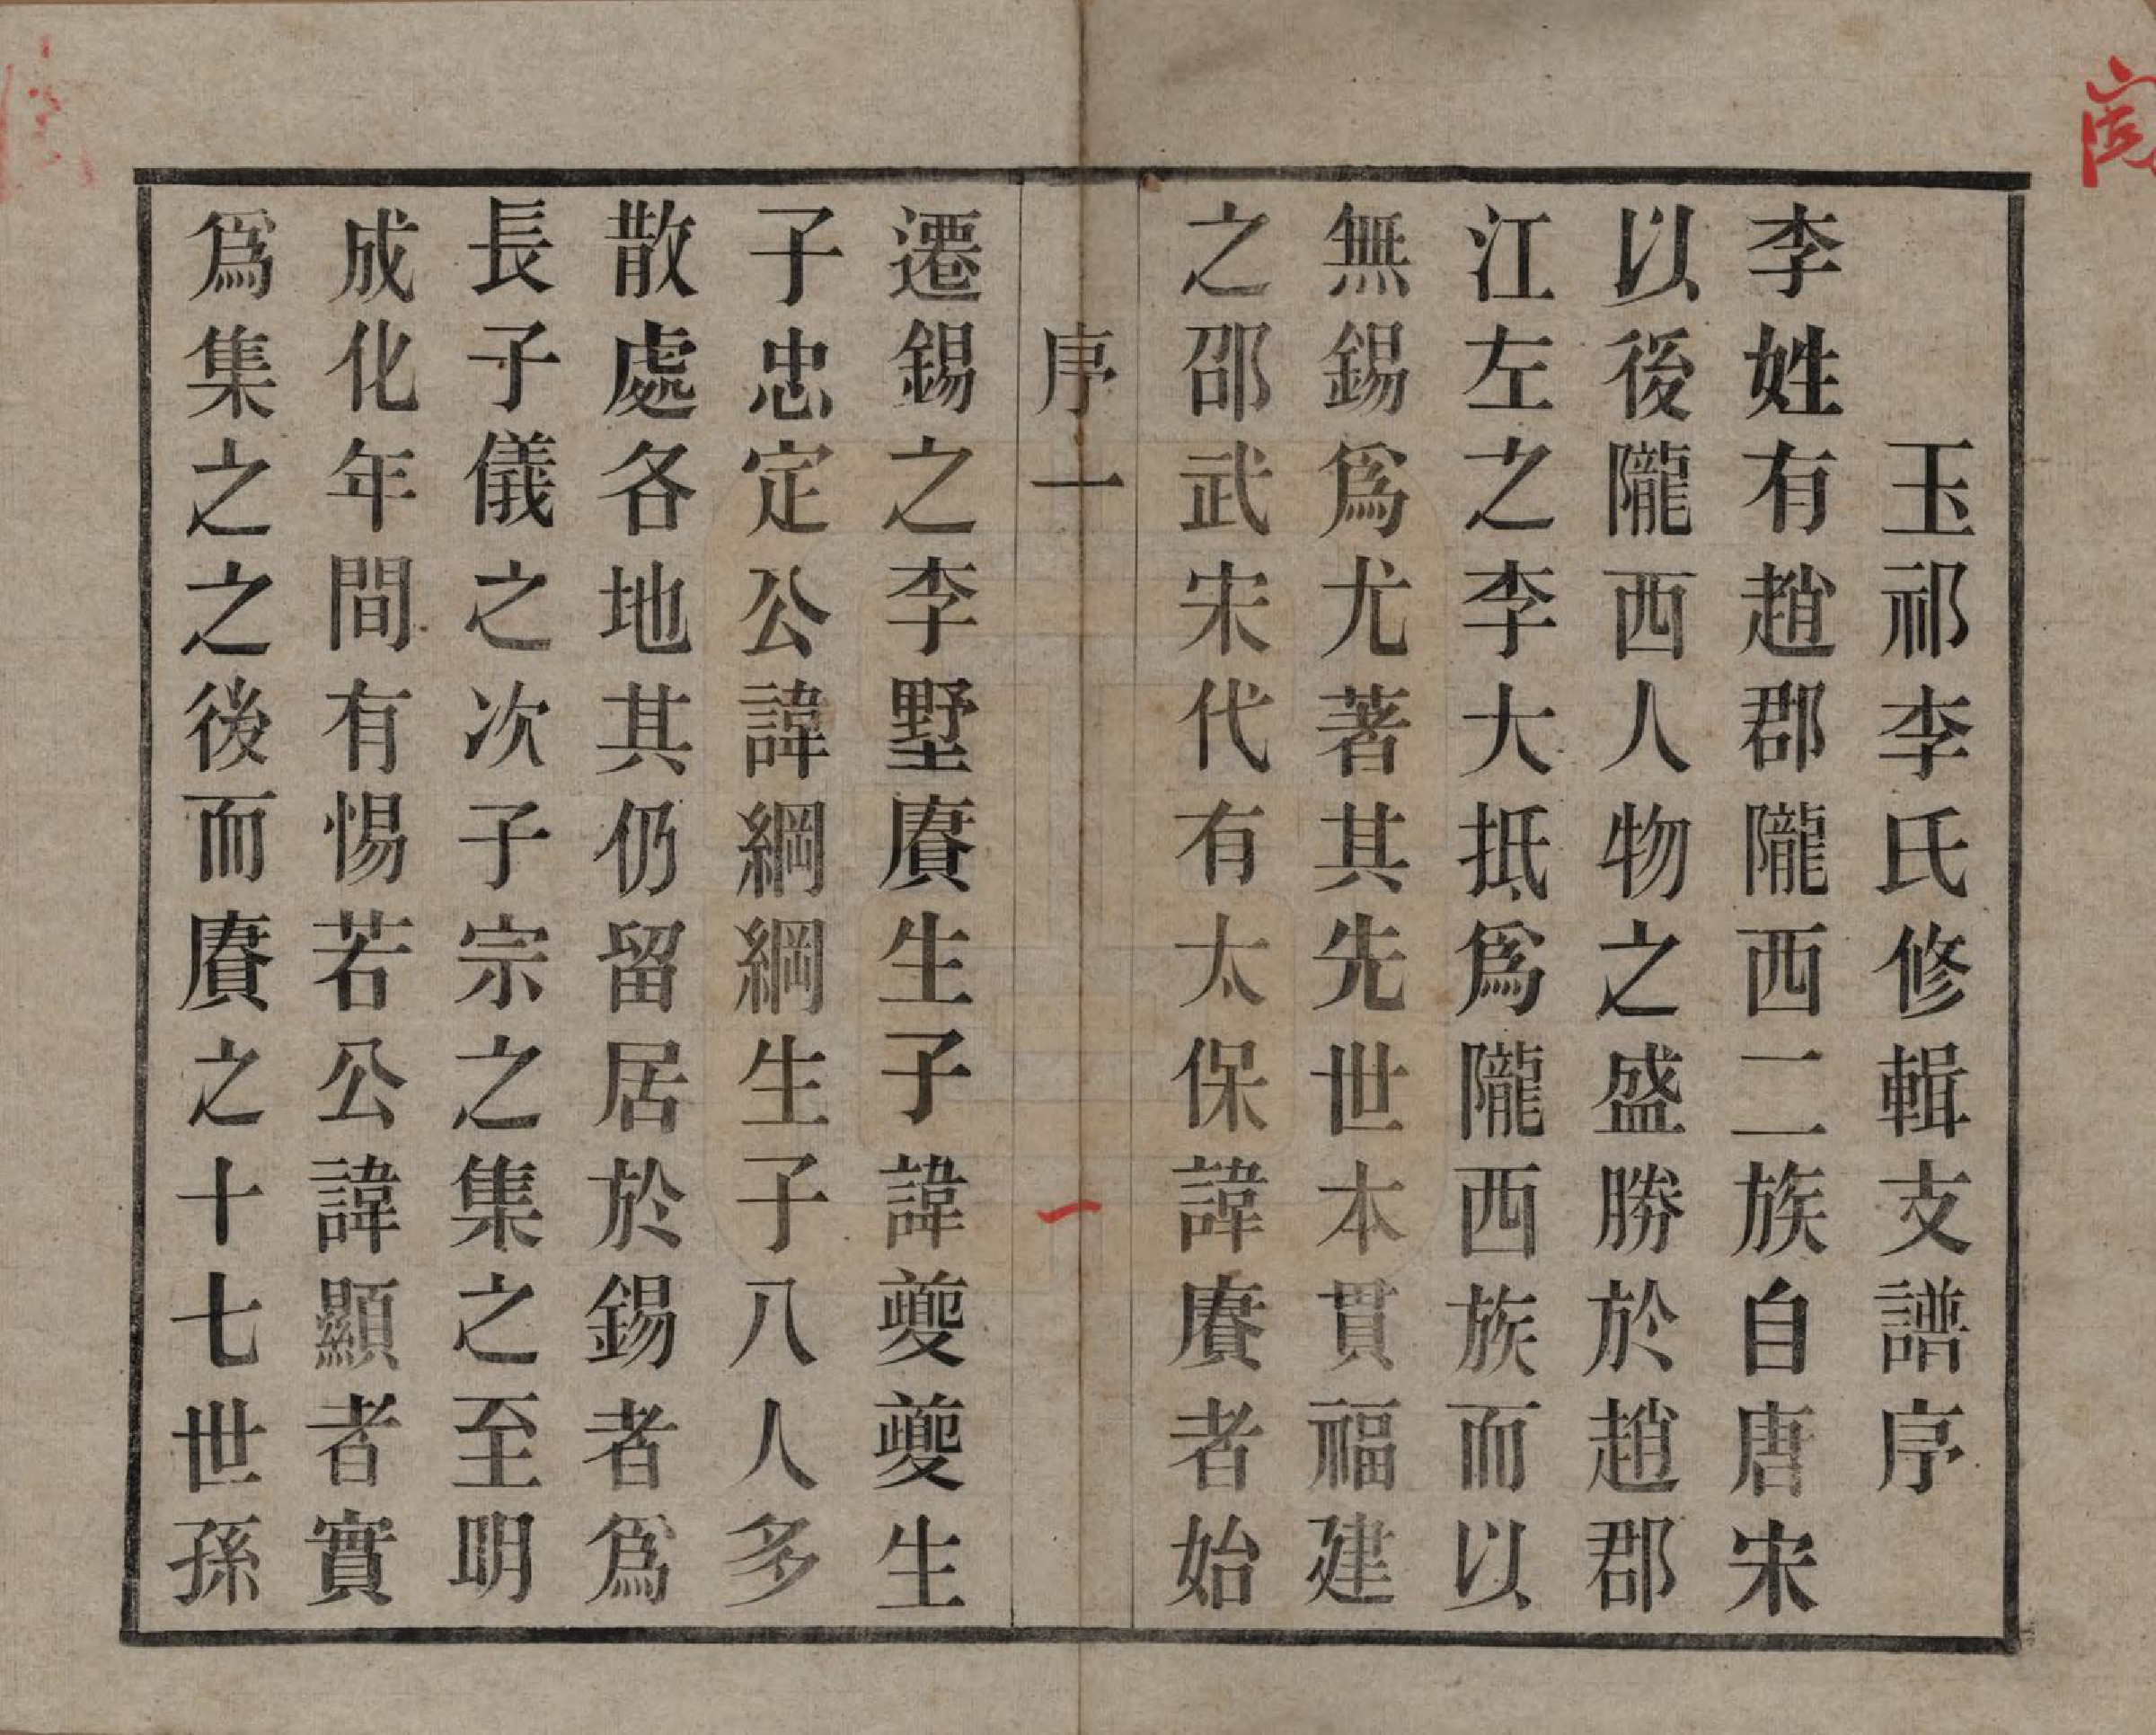 玉祁李氏修輯支譜序
李姓有趙郡隴西二族自唐宋
以後隴西人物之盛勝於趙郡
江左之李大抵爲隴西族而以
無錫爲尤著其先世本貫福建
之邵武宋代有太保諱賡者始
序一
一
遷錫之李墅賡生子諱夔夔生
子忠定公諱綱綱生子八人多
散處各地其仍留居於錫者爲
長子儀之次子宗之集之至明
成化年間有惕若公諱顯者實
爲集之之後而賡之十七世孫